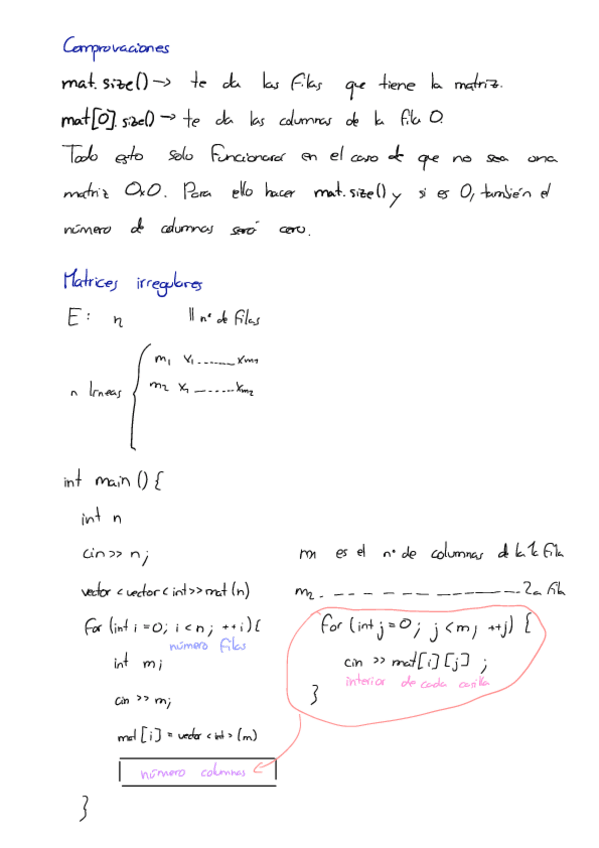 Comprovaciones
mat.size() → te da las filas que tiene la matriz.
mat[0].size() → te da las columnas de la fila 0.
Todo esto solo funcionará en el caso de que no sea una
matriz 0x0. Para ello hacer mat.size() y si es 0, también el
número de columnas será cero.
Matrices irregulares
E: n || nº de filas
n líneas
m1 x1 ........ xm1
m2 x1 ........ xm2
int main () {
int n
cin >> n;
vector <vector <int>> mat (n)
for (int i = 0; i < n; ++i) {
número filas
int m;
cin >> m;
mat [i] = vector <int> (m)
número columnas
}
m1 es el nº de columnas de la 1a fila
m2 - - - - - - - - - - - - - - 2a fila
for (int j = 0; j < m; ++j) {
cin >> mat [i] [j] ;
interior de cada casilla
}